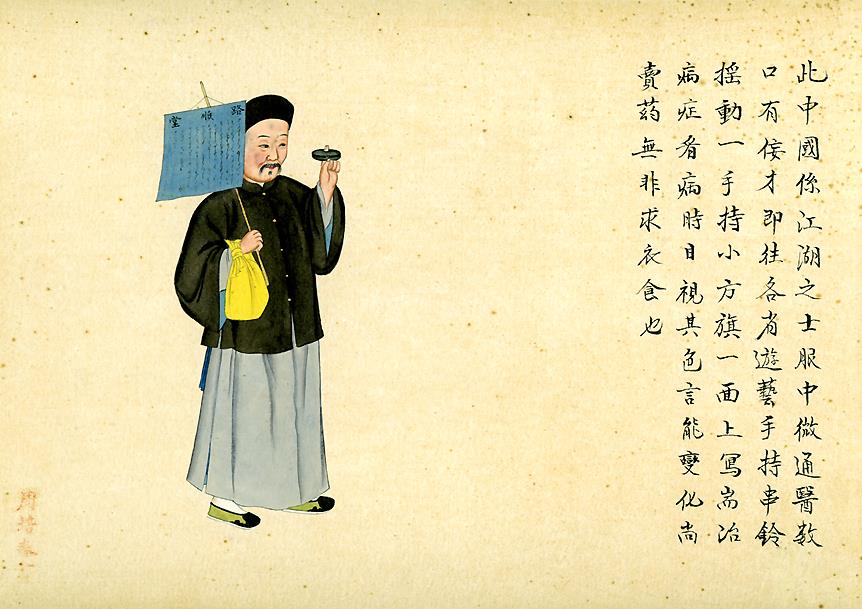 此中國係江湖之士服中微通醫数
口有侫才即往各省遊藝手持串鈴
摇動一手持小方旗一面上寫耑治
病症看病時目視其色言能變化尚
賣药無非求衣食也
路順堂
周培春